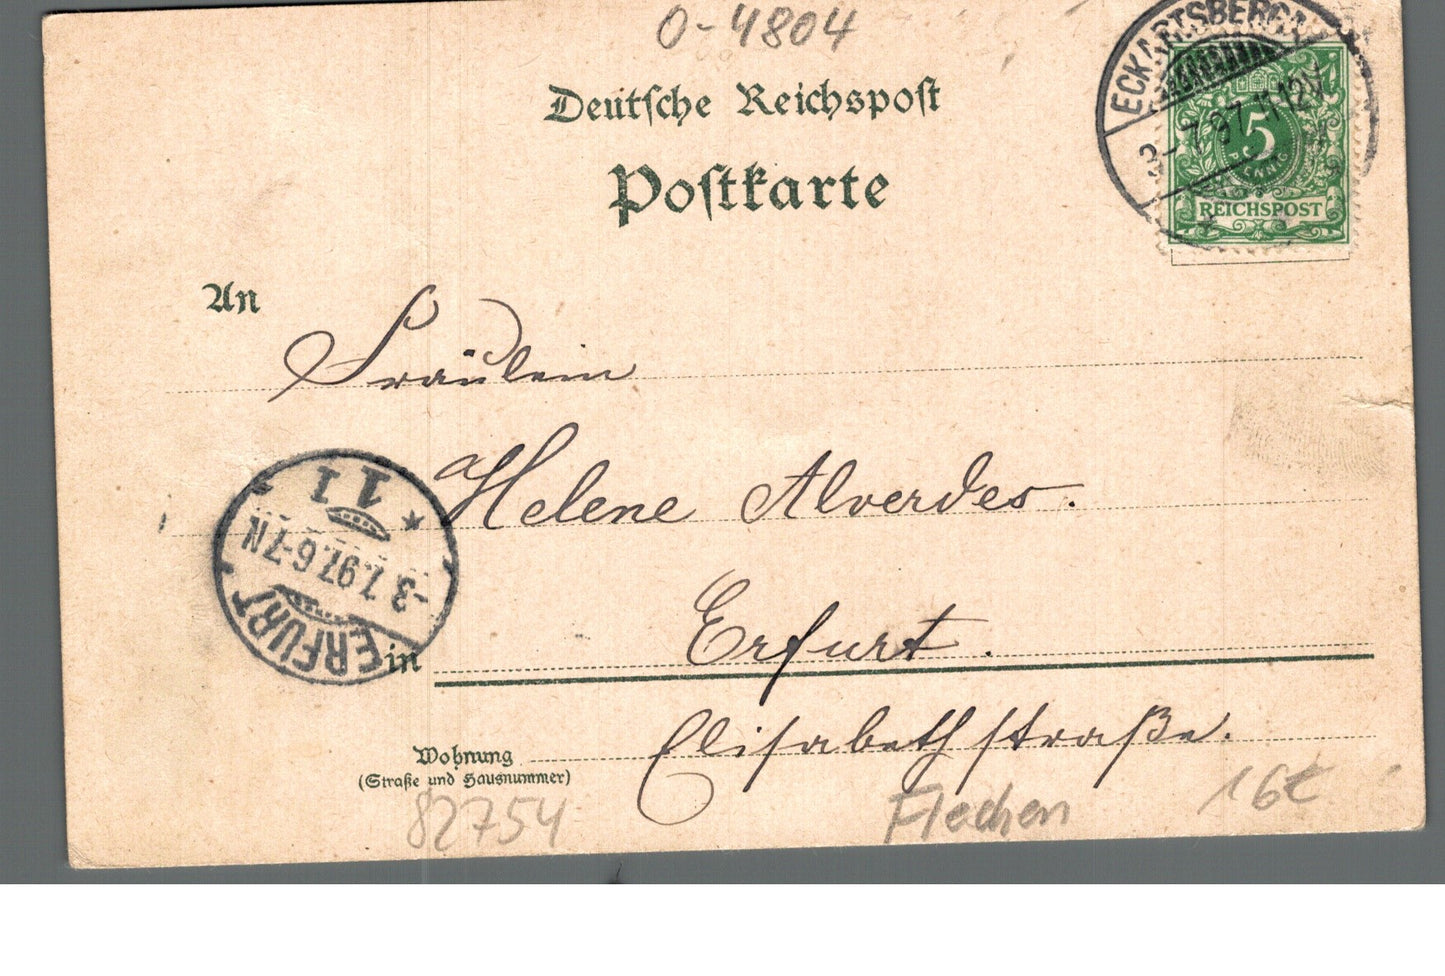 0-4804
Deutsche Reichspost
Postkarte
ECKARTSBERGA
3-7.97.11-12V
5
PFENNIG
REICHSPOST
An
Fräulein
Helene Alverdes.
11
-3.7.97.6-7N
ERFURT
in
Erfurt.
Elisabethstraße.
Wohnung
(Straße und Hausnummer)
82754
Flecken
16€